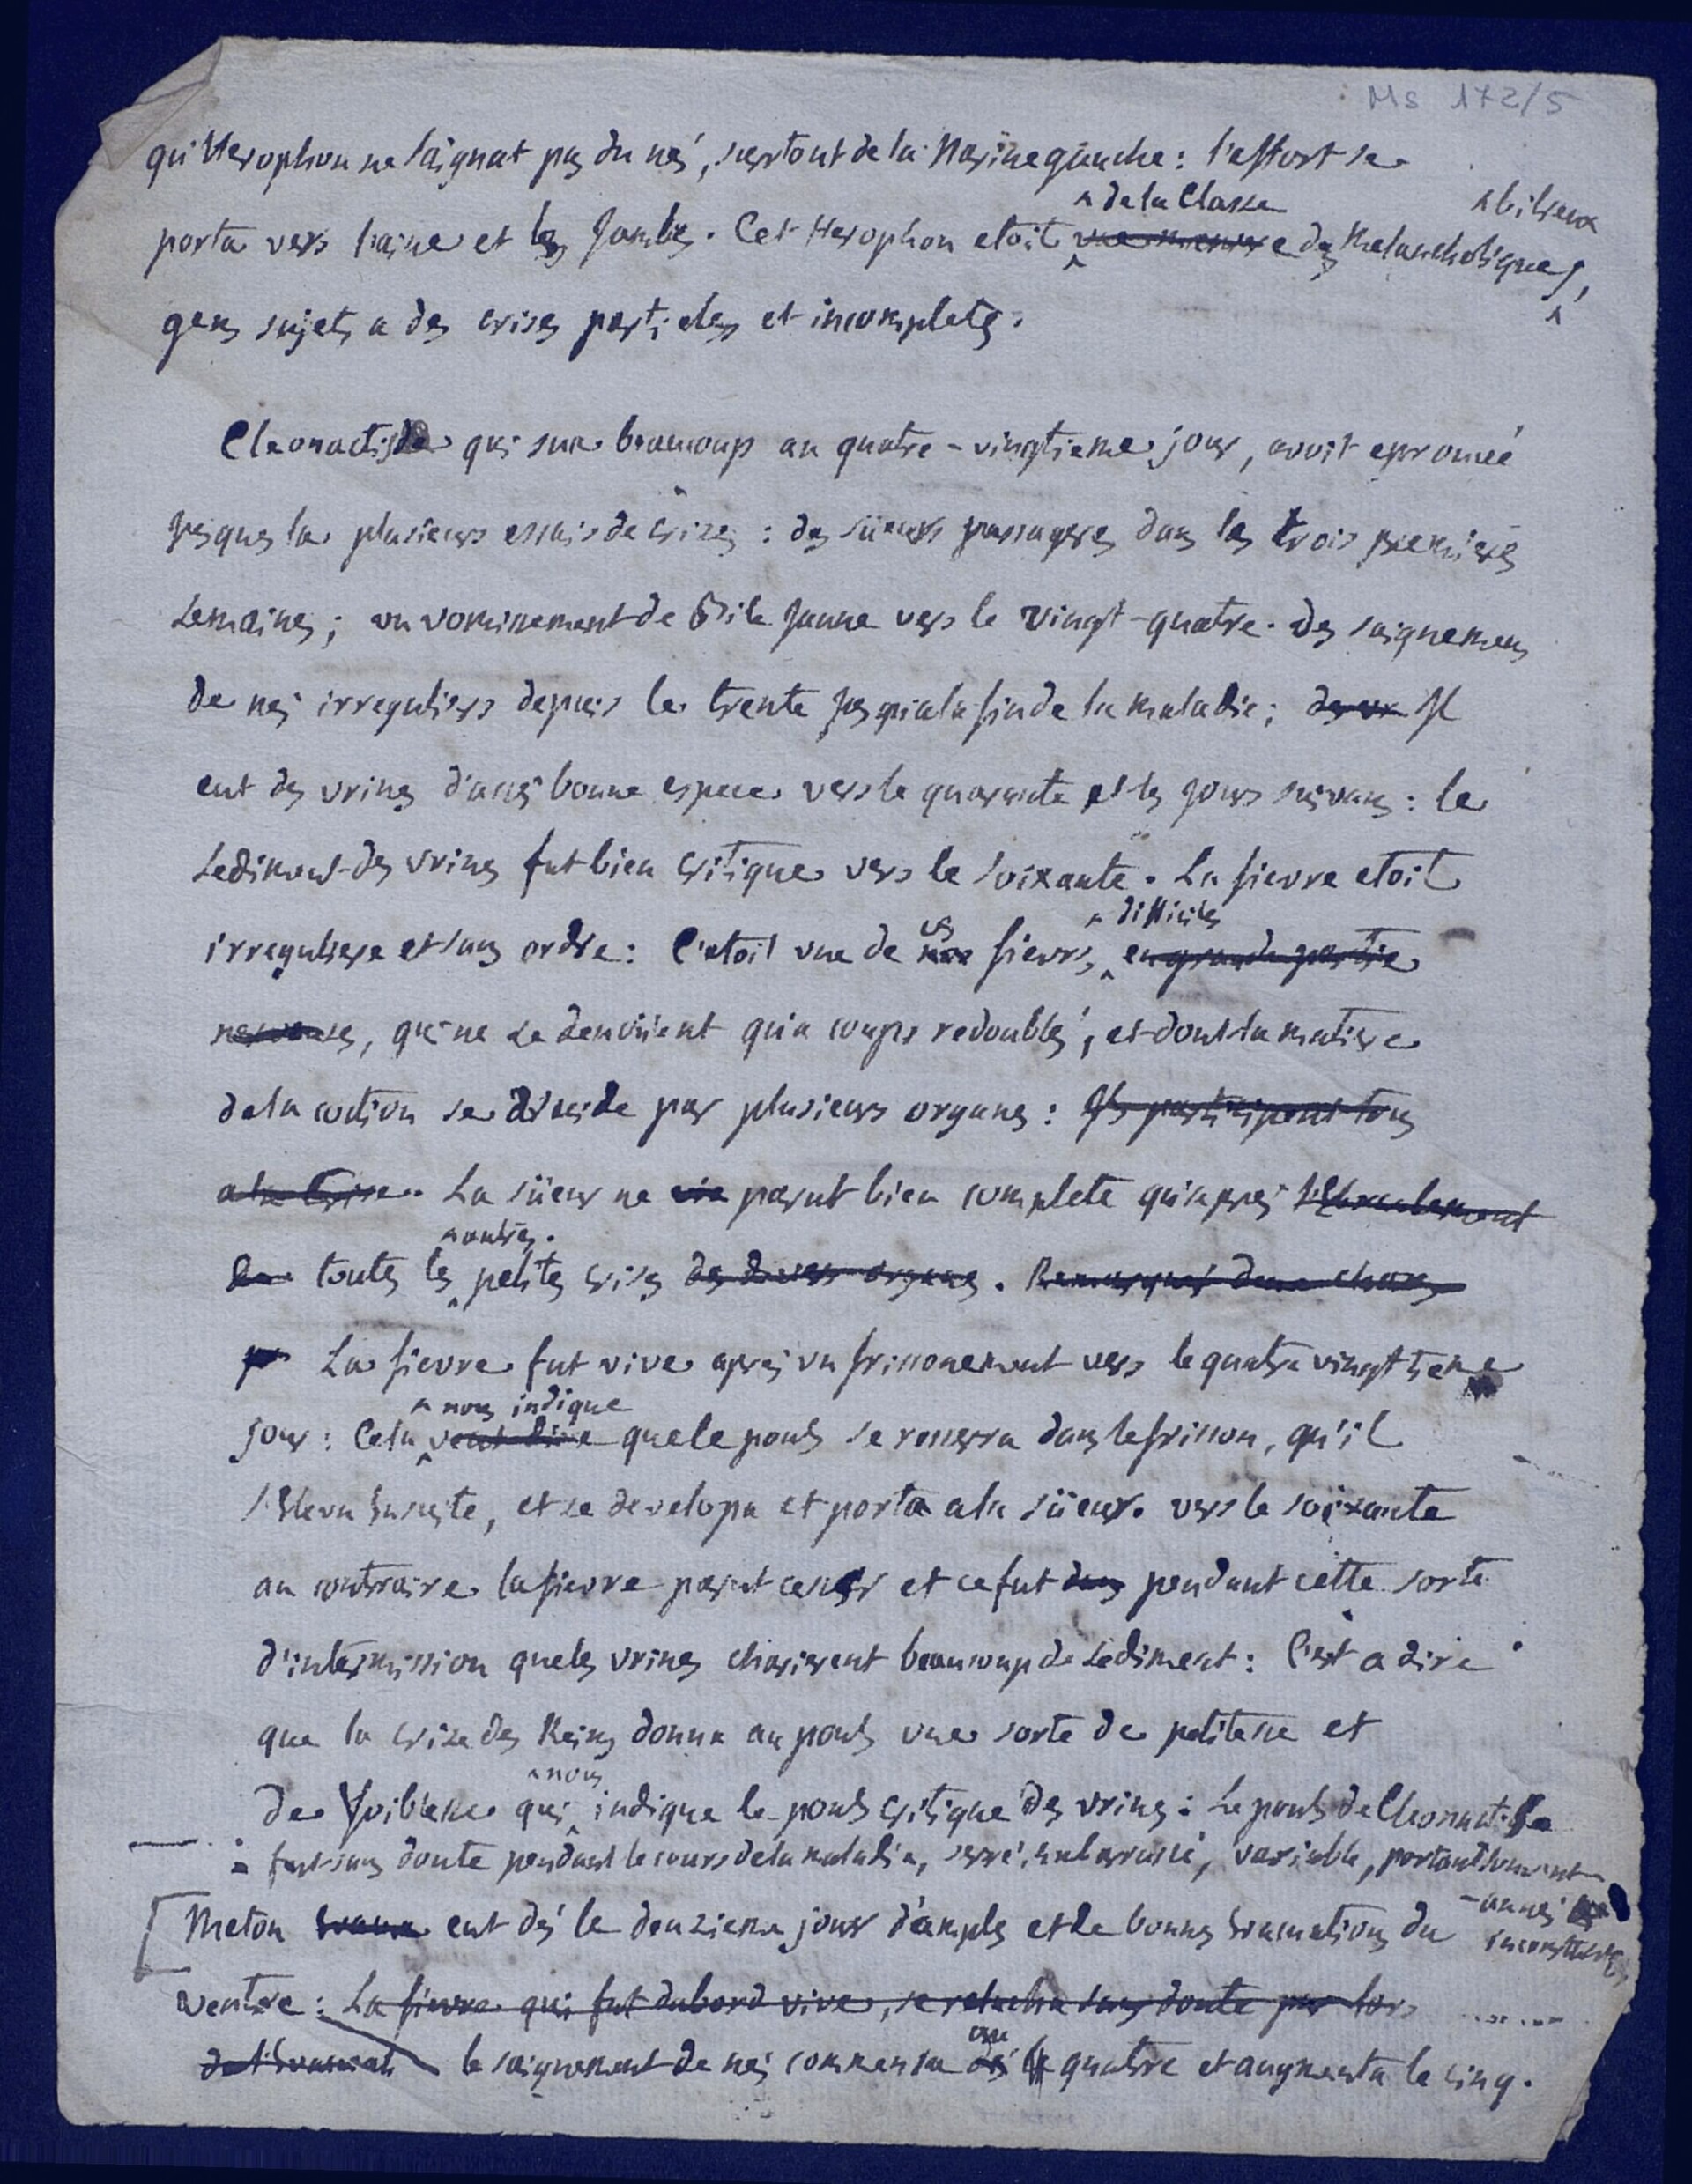 Ms 172/5
qu'Herophon ne saignat pas du nés, surtout de la Narine gauche: l'effort se
^ de la Classe ^ bilieux
porta vers l'aine et les Jambes. Cet Herophon etoit des Melancholiques,
gens sujets a des crises partieles et incompletes.
Cleonactide qui sua beaucoup au quatre-vingtieme jour, avoit eprouvé
Jusques la plusieurs essais de crizes: des süeurs passageres dans les trois premieres
semaines; un vomissement de Bile Jaune vers le vingt-quatre. des saignemens
de nés irreguliers depuis le trente Jusqu'a la fin de la maladie; Il
eut des vrines d'assés bonne espece vers le quarante et les Jours suivans: le
sediment des vrines fut bien critique vers le soixante. La fievre etoit
^ difficiles
irreguliere et sans ordre: C'etoit vne de ces fievres, en grande partie
nerveuses, qui ne se denoüent qu'a coups redoublés, et dont la matiere
de la coction se decide par plusieurs organes: Ils participent tous
a la Crise. La süeur ne parut bien complete qu'apres l'Ebranlement
^ autres.
toutes les petites crises des divers organes.
La fievre fut vive aprés vn frissonement vers le quatre vingttieme
^ nous indique
jour: Cela veut dire que le pouls se resserra dans le frisson, qu'il
s'Eleva Ensuite, et se developa et porta a la süeur. vers le soixante
au contraire la fievre parut cesser et ce fut dans pendant cette sorte
d'intermission que les vrines charierent beaucoup de sediment: C'est a dire
que la crize des Reins donna au pouls vne sorte de petitesse et
^ nous
de foiblesse qui indique le pouls critique des vrines: Le pouls de Cleonactide
fut sans doute pendant le cours de la maladie, serré, embarassé, variable, portant souvent
Meton eut dés le deuzieme jour d'amples et de bonnes Evacuations du
ventre: La fievre qui fut dabord vive, se relacha sans doute par lors
ou
de l'Evacuati le saignement de nés commensa quatre et augmenta le cinq.